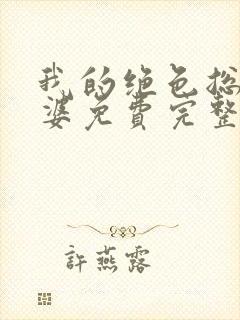 我的绝色总
婆免費完整
許燕露